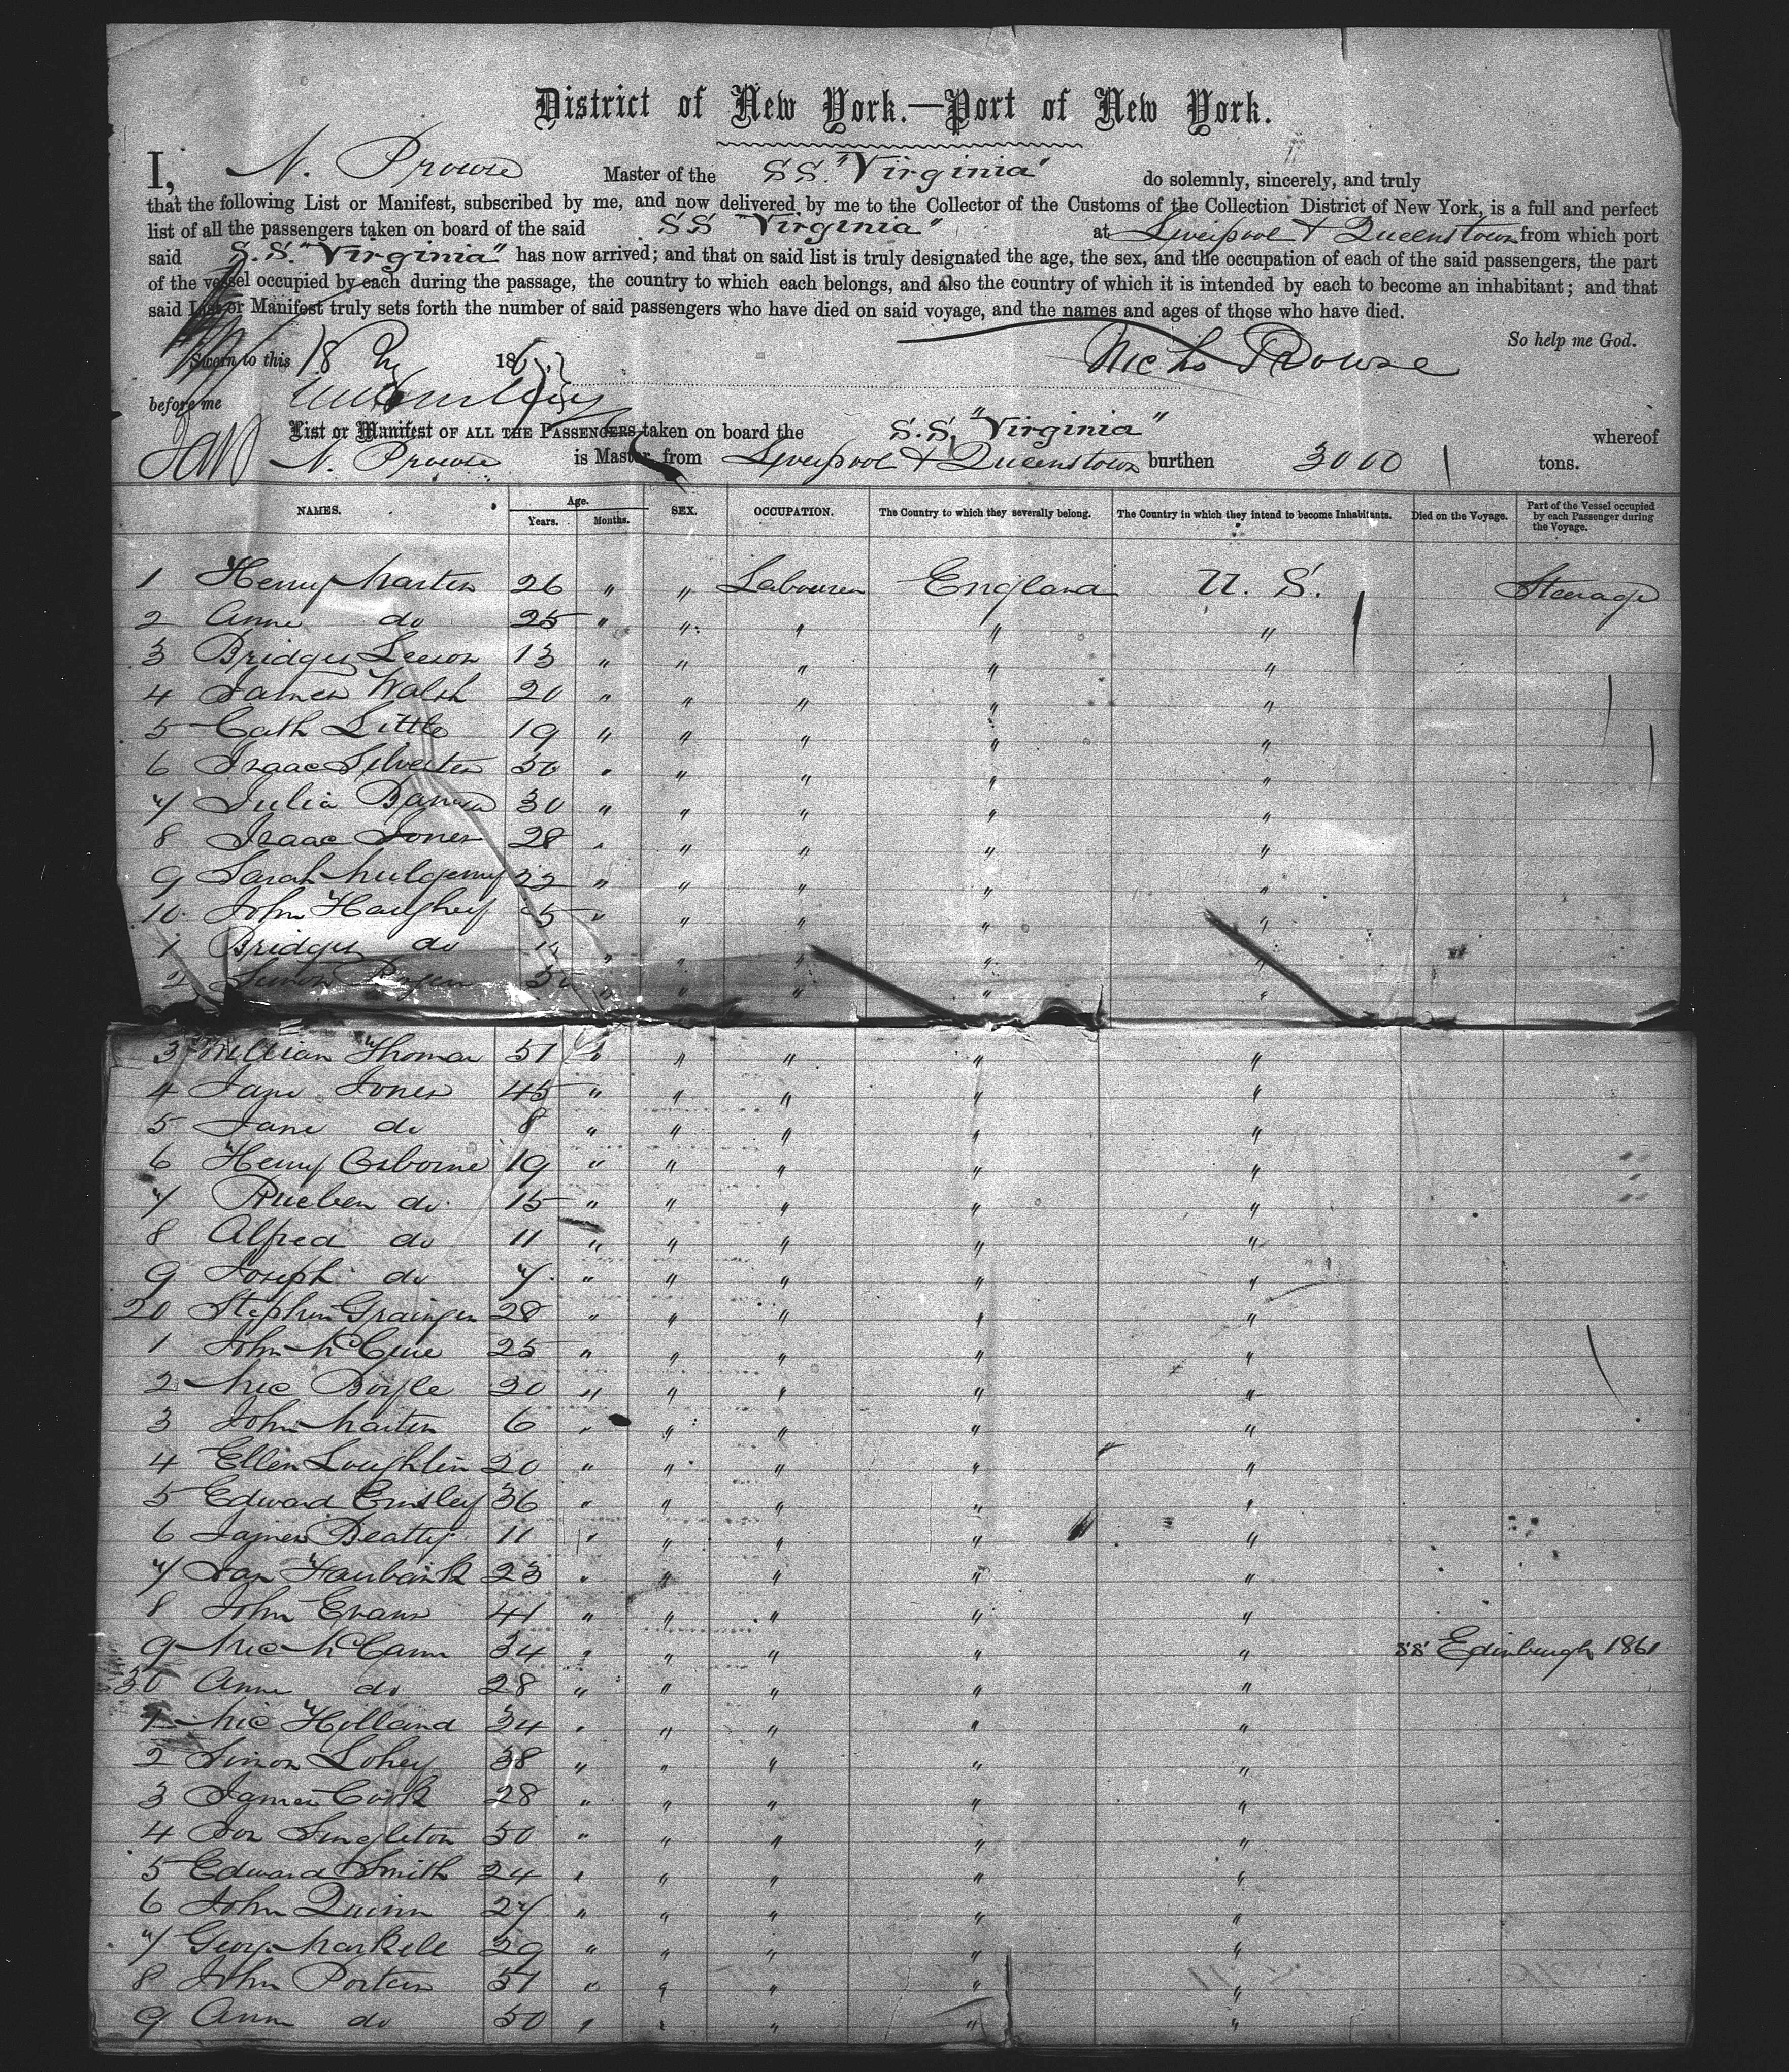 District of New York.—Port of New York.
I, N. Prowse Master of the S.S. "Virginia" do solemnly, sincerely, and truly
that the following List or Manifest, subscribed by me, and now delivered by me to the Collector of the Customs of the Collection District of New York, is a full and perfect
list of all the passengers taken on board of the said SS "Virginia" at Liverpool & Queenstown from which port
said S.S. "Virginia" has now arrived; and that on said list is truly designated the age, the sex, and the occupation of each of the said passengers, the part
of the vessel occupied by each during the passage, the country to which each belongs, and also the country of which it is intended by each to become an inhabitant; and that
said List or Manifest truly sets forth the number of said passengers who have died on said voyage, and the names and ages of those who have died.
So help me God.
Sworn to this 18 186 Nichs Prowse
before me
List or Manifest OF ALL THE PASSENGERS taken on board the S.S. "Virginia" whereof
N. Prowse is Master, from Liverpool & Queenstown burthen 3000 tons.
NAMES. Age. Years. Months. SEX. OCCUPATION. The Country to which they severally belong. The Country in which they intend to become Inhabitants. Died on the Voyage. Part of the Vessel occupied by each Passenger during the Voyage.
1 Henry Martin 26 " " Labourer England U. S. Steerage
2 Anne do 25 " " " " "
3 Bridget Leeson 13 " " " " "
4 James Walsh 20 " " " " "
5 Cath Little 19 " " " " "
6 Isaac Silvester 50 " " " " "
7 Julia 30 " " " " "
8 Isaac Jones 28 " " " " "
9 Sarah 22 " " " " "
10 John Haughey " " " " "
1 Bridget do " " " " "
2 Simon " " " " "
3 William Thomas 51 " " " " "
4 Jane Jones 45 " " " " "
5 Jane do 8 " " " " "
6 Henry Osborne 19 " " " " "
7 Rueben do 15 " " " " "
8 Alfred do 11 " " " " "
9 Joseph do 7 " " " " "
20 Stephen Grainger 28 " " " " "
1 John McCue 25 " " " " "
2 Mic Boyle 20 " " " " "
3 John Martin 6 " " " " "
4 Ellen Loughlin 20 " " " " "
5 Edward Emsley 36 " " " " "
6 James Beatty 11 " " " " "
7 Jas Fairbank 23 " " " " "
8 John Evans 41 " " " " "
9 Mic McCann 34 " " " " " SS Edinburgh 1861
30 Anne do 28 " " " " "
1 Mic Holland 34 " " " " "
2 Simon Lohey 38 " " " " "
3 James Cook 28 " " " " "
4 Jos Singleton 50 " " " " "
5 Edward Smith 24 " " " " "
6 John Quinn 27 " " " " "
7 Geory Markell 29 " " " " "
8 John Porter 51 " " " " "
9 Ann do 50 " " " " "